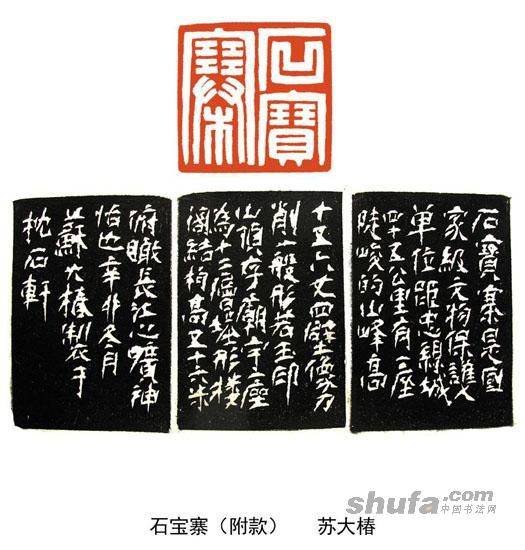 石寶
寨
石寶寨是國
家級文物保護
單位距忠縣城
四十五公里有一座
陡峻的山峰高
十五六丈四壁像刀
削一般形若玉印
山頂存廟宇一座
為十二層塔形樓
閣結構高五十六米
俯瞰長江心曠神
怡也辛卯冬月
蘇大椿製于
枕石軒
shufa.com
中国书法网
石宝寨（附款） 苏大椿